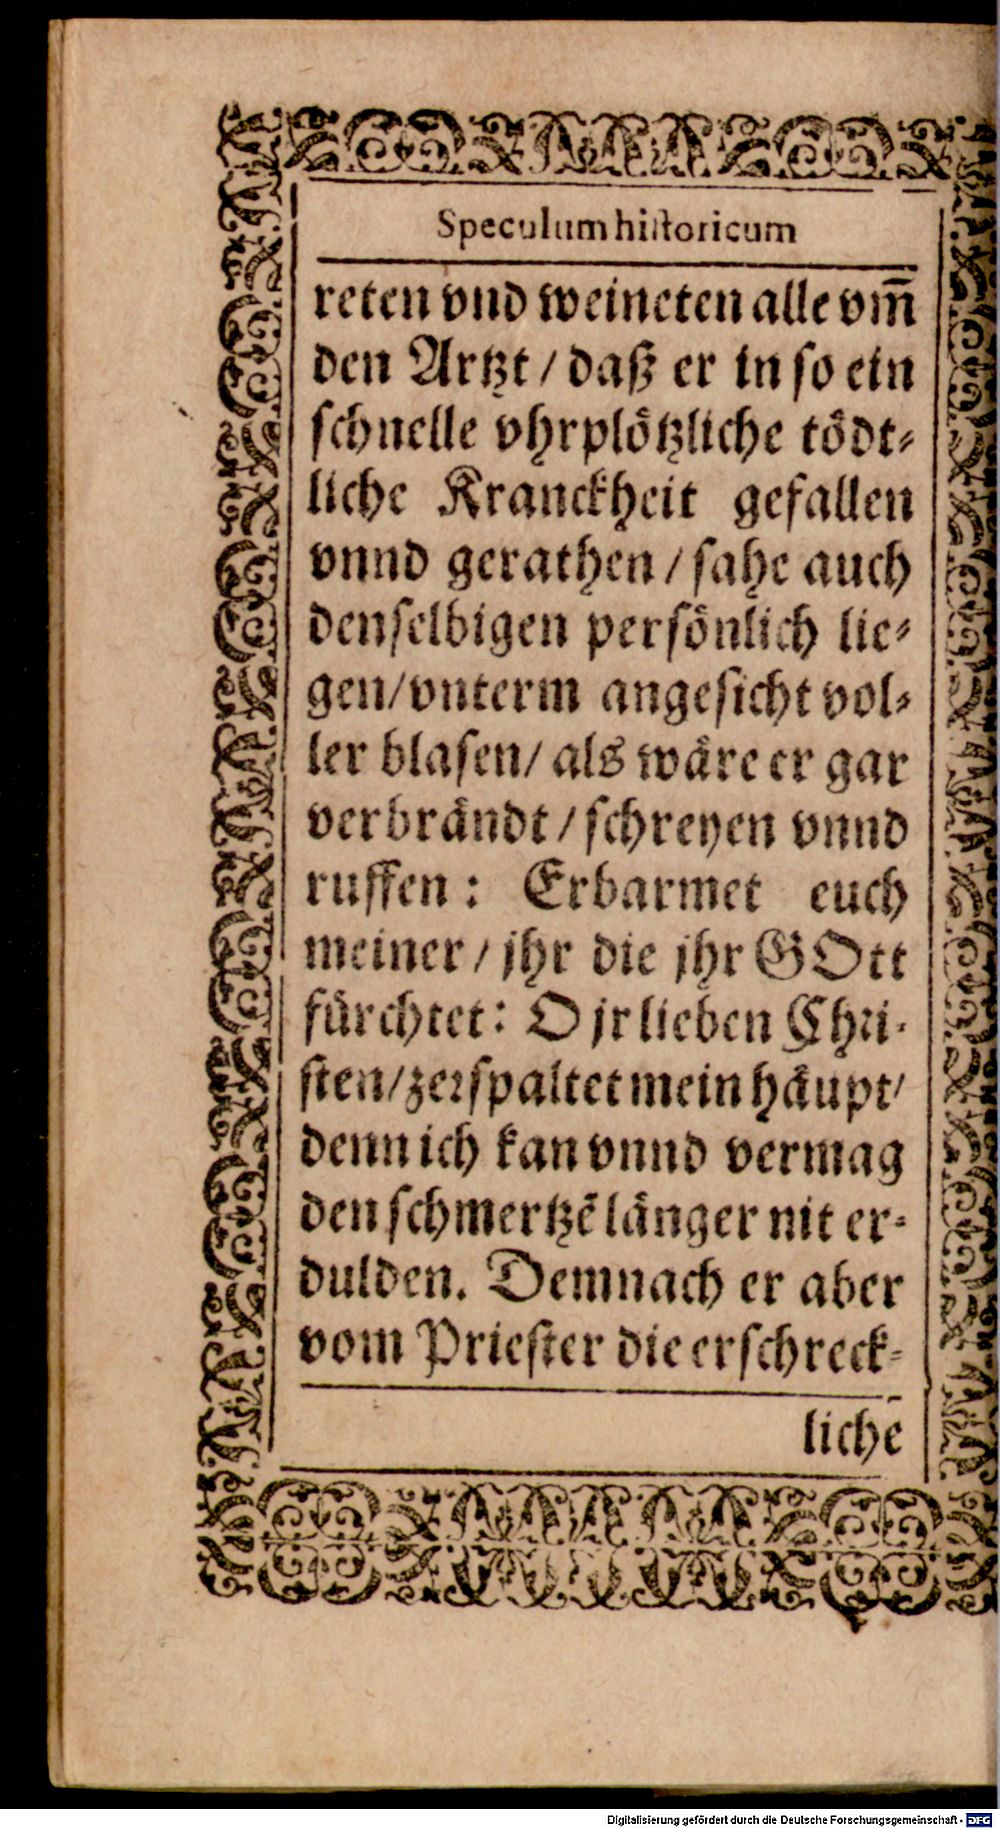 Speculum historicum
reten vnd weineten alle vm̃
den Artzt / daß er in so ein
schnelle vhrplötzliche tödt-
liche Kranckheit gefallen
vnnd gerathen / sahe auch
denselbigen persönlich lie-
gen / vnterm angesicht vol-
ler blasen / als wäre er gar
verbrändt / schreyen vnnd
ruffen : Erbarmet euch
meiner / jhr die jhr GOtt
fürchtet : O jr lieben Chri-
sten / zerspaltet mein häupt /
denn ich kan vnnd vermag
den schmertzẽ länger nit er-
dulden. Demnach er aber
vom Priester die erschreck-
liche
Digitalisierung gefördert durch die Deutsche Forschungsgemeinschaft - DFG